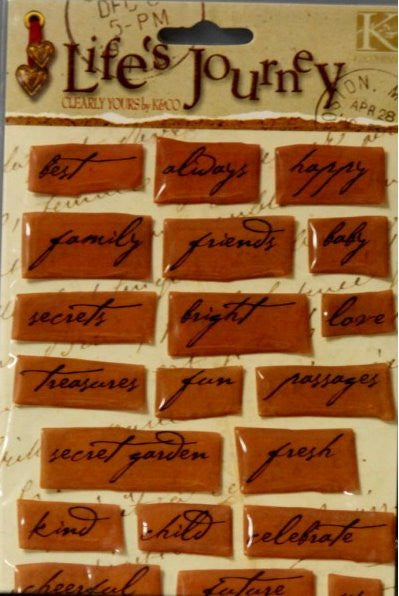 DEC
5-PM
K
Life's Journey
CLEARLY YOURS by K&CO
APR 28
best always happy
family friends baby
secrets bright love
treasures fun passages
secret garden fresh
kind child celebrate
cheerful future us